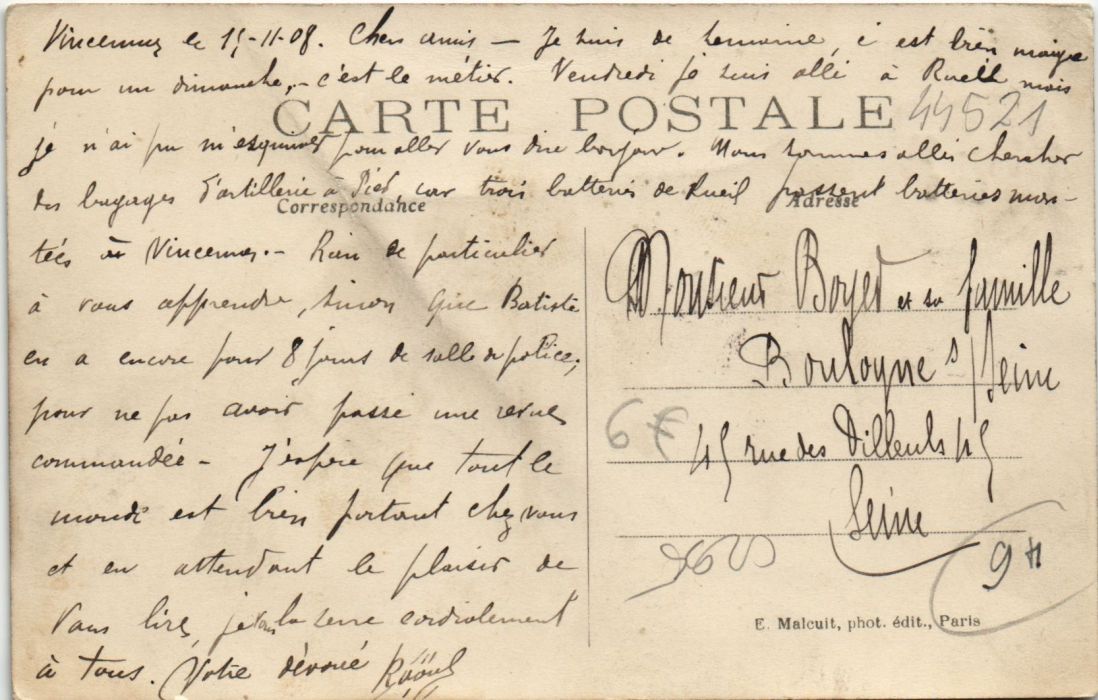 Vincennes le 15-11-08. Chers amis — Je suis de semaine, c est bien maigre
pour un dimanche, - c'est le métier. Vendredi je suis allé à Rueil mais
CARTE POSTALE
44521
je n'ai pu m'esquiver pour aller vous dire bonjour. Nous sommes allés chercher
des bagages d'artillerie à Pied, car trois batteries de Rueil passent batteries mon-
Correspondance
Adresse
tées à Vincennes. - Rien de particulier
à vous apprendre, sinon que Batiste
en a encore pour 8 jours de salle de police;
pour ne pas avoir passé une revue
commandée - J'espère que tout le
monde est bien portant chez vous
et en attendant le plaisir de
vous lire, je vous la serre cordialement
à tous. Votre dévoué Raoul
Monsieur Boyer et sa famille
Boulogne s/Seine
6€
45 rue des Tilleuls 45
Seine
9H
E. Malcuit, phot. édit., Paris